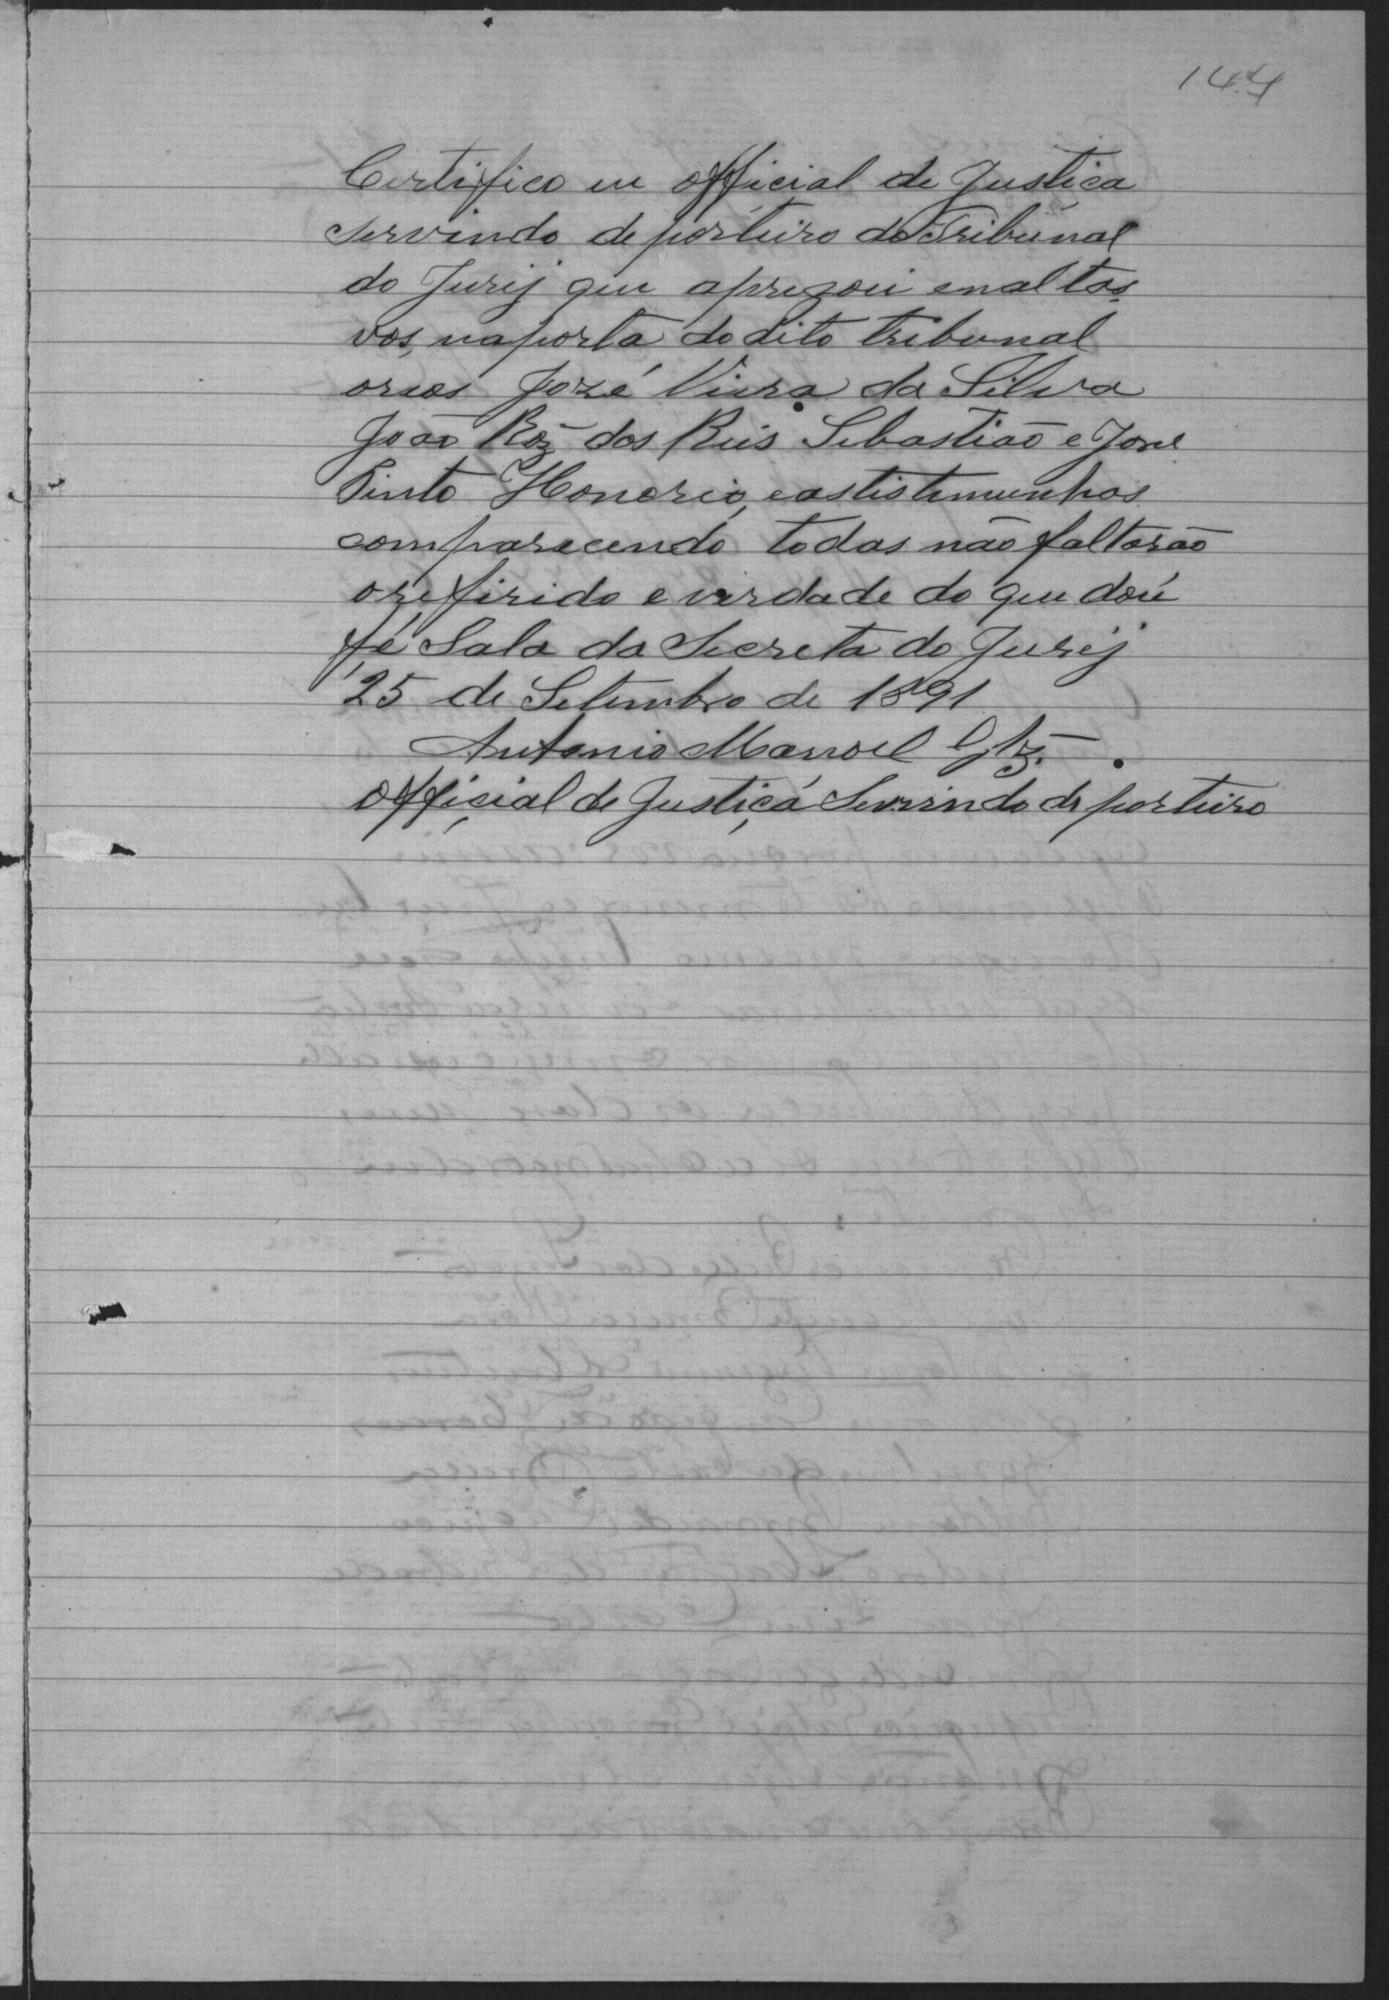 144
Certifico eu official de Justica
servindo de porteiro do Tribunal
do Jurij que apregoei em altas
vos, na porta do dito tribunal
os reos José Viera da Silva
João Roz dos Reis Sebastião e José
Pinto Honorio, e as tistimunhas
comparecendo todas não faltarão
o refirido e virdade do que doú
fé Sala da Secreta do Jurij
25 de Setimbro de 1891
Antonio Manoel Glz.
Official de Justiçá Servindo de porteiro